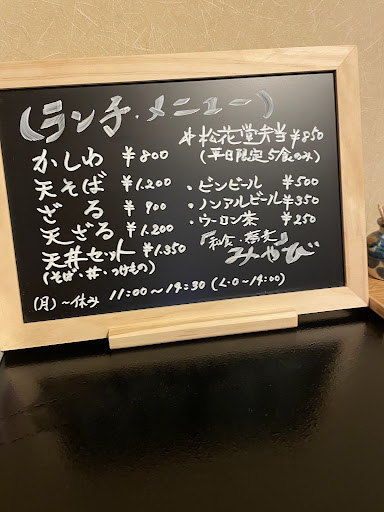 (ランチ・メニュー)
かしわ ¥800
天そば ¥1.200
ざる ¥900
天ざる ¥1.200
天丼セット ¥1.350
(そば・丼・つけもの)
松花堂弁当 ¥850
(平日限定5食のみ)
・ビンビール ¥500
・ノンアルビール ¥350
・ウーロン茶 ¥250
「和食・蕎麦」
みやび
(月)〜休み 11:00〜14:30 (L・O〜14:00)